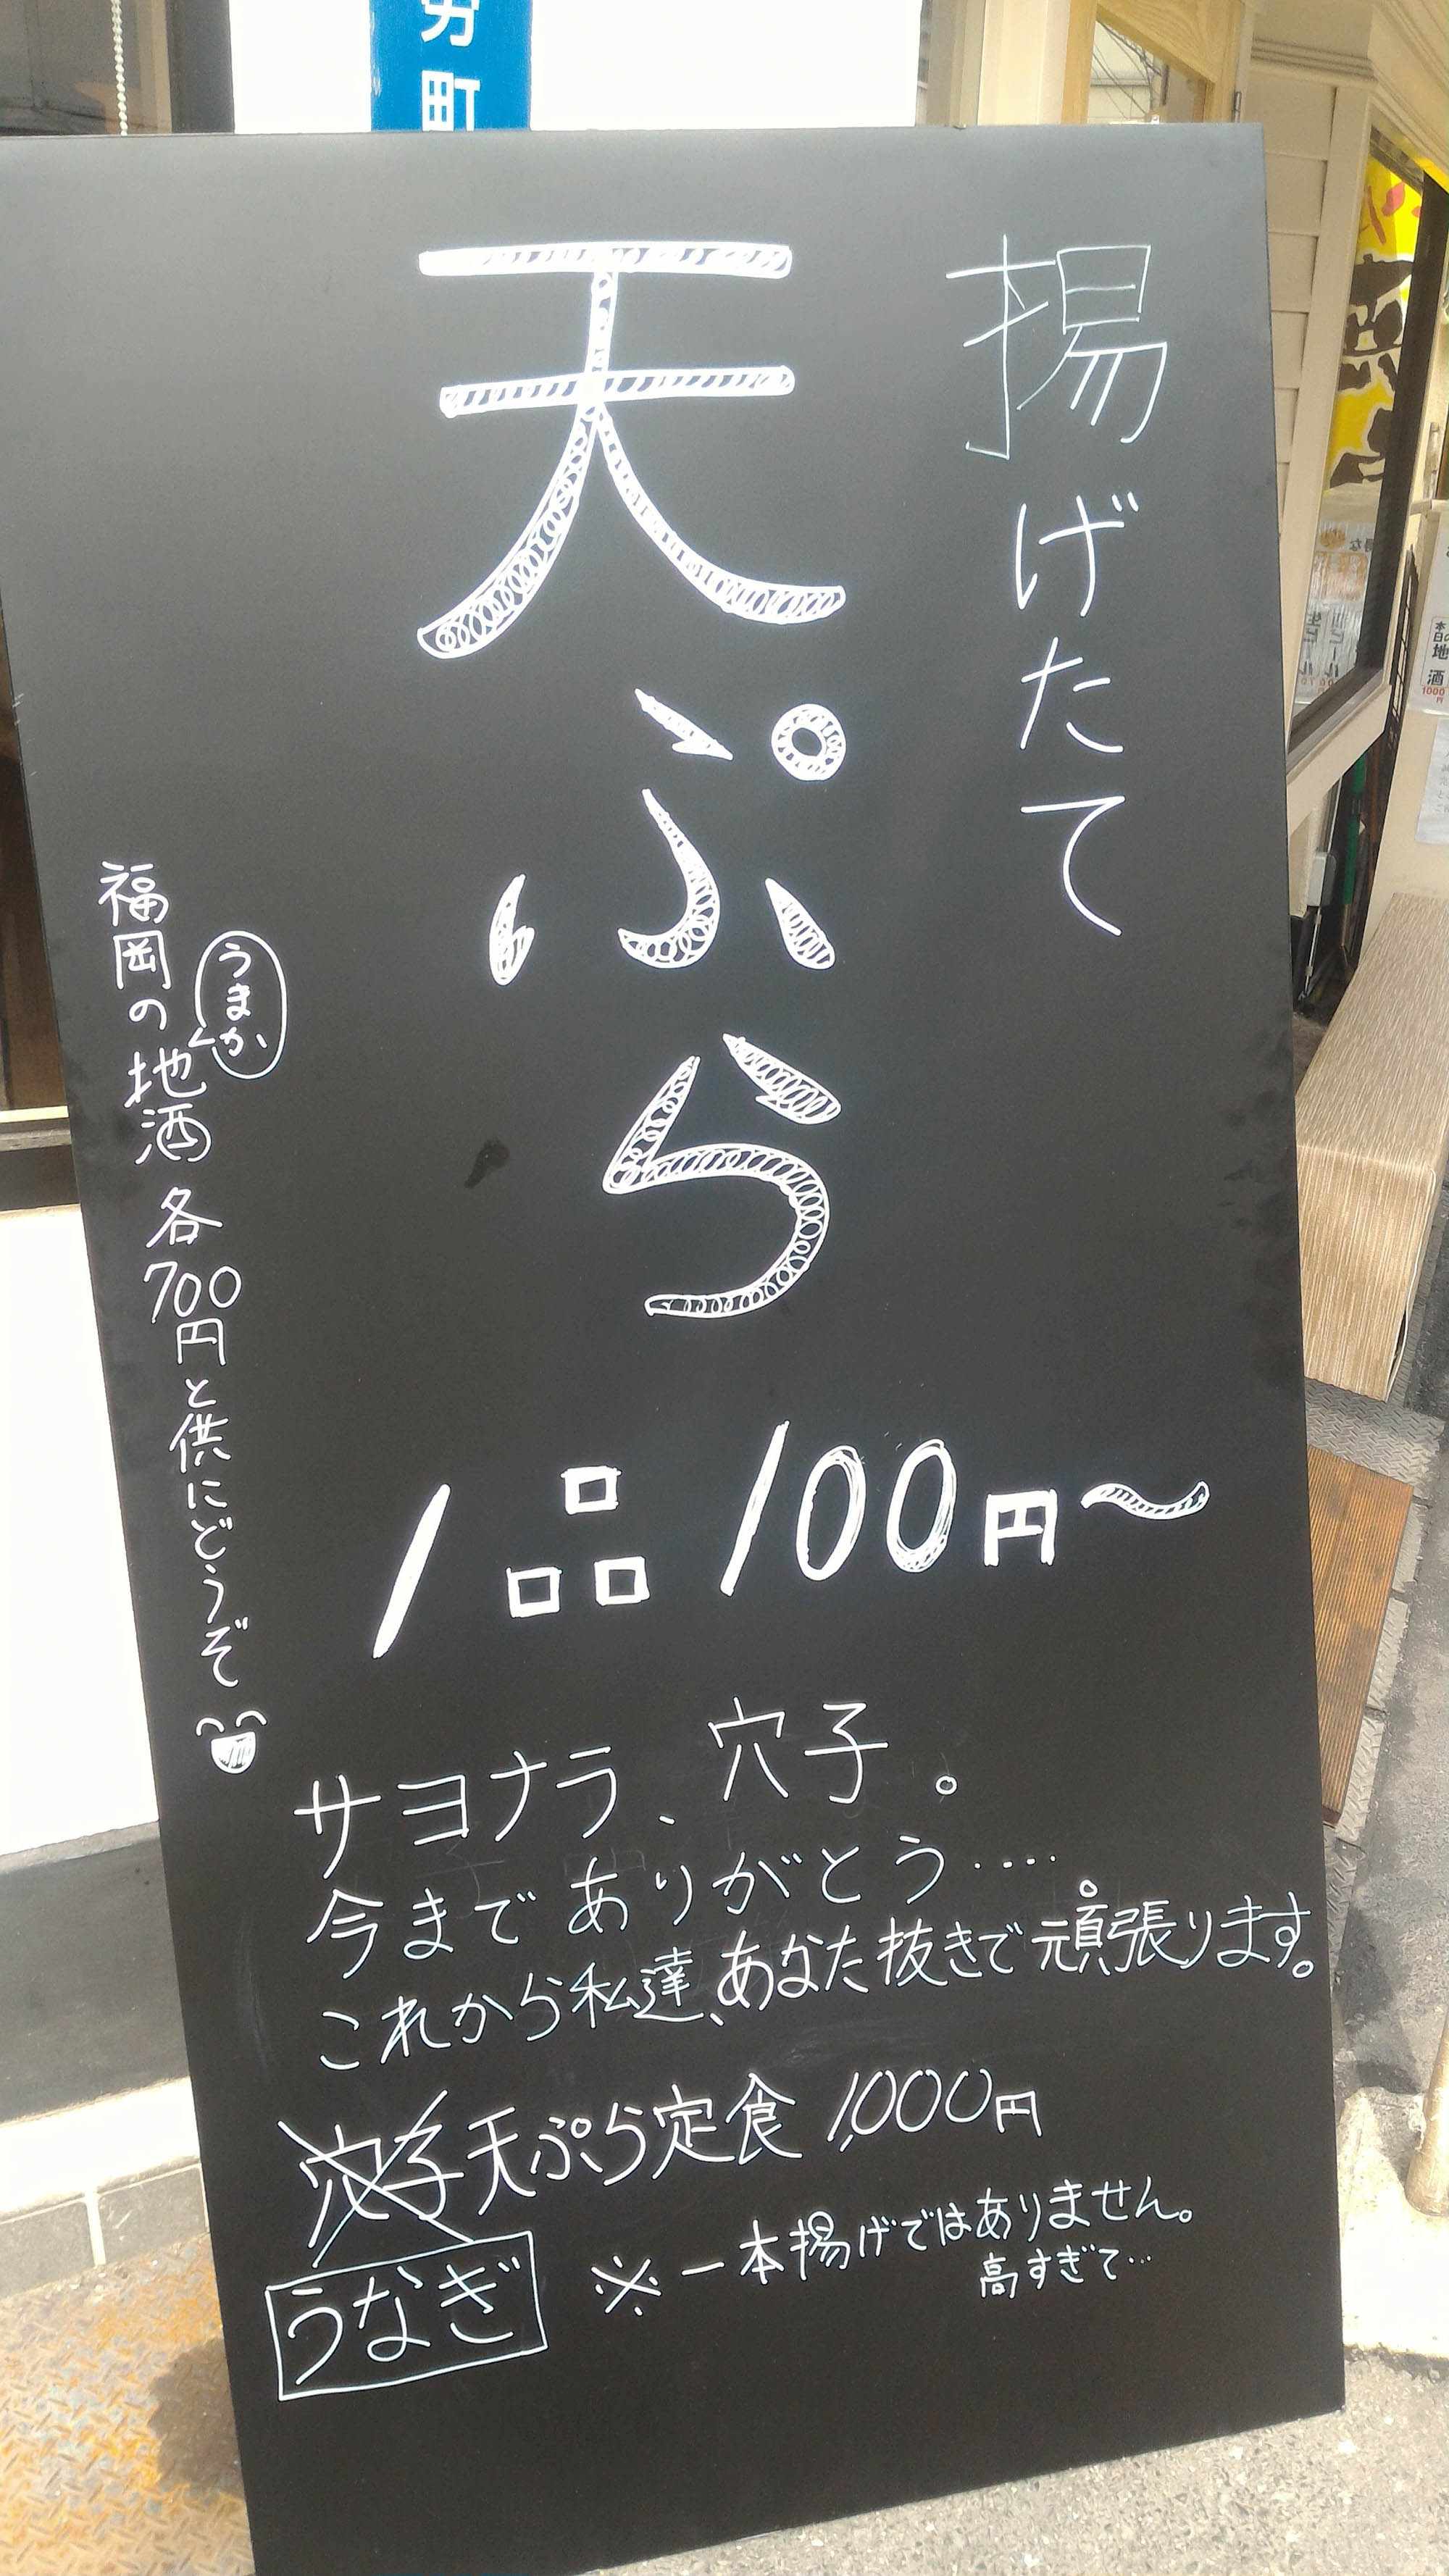 労町
揚げたて
天ぷら
うまか
福岡の地酒 各700円と供にどうぞ
1品100円～
サヨナラ、穴子。
今までありがとう‥‥
これから私達、あなた抜きで頑張ります。
穴子天ぷら定食 1,000円
うなぎ
※一本揚げではありません。
高すぎて…
本日の地酒
1000円